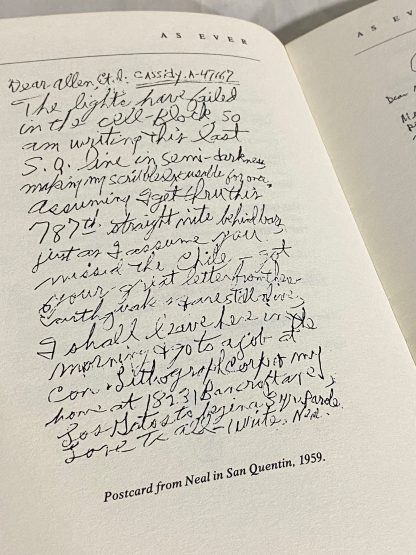 AS EVER
Dear Allen, et. al. CASSADY. A-47667
The lights have failed
in the cell-block, so
am writing this last
S.Q. line in semi-darkness,
making my scribbles excusable for once.
Assuming I get thru this
787th. straight nite behind bars
just as I assume you
missed the Chile - got
your great letter from there -
earthquake & are still alive,
I shall leave here in the
morning & go to a job at
Con. Lithograph Corp. & my
home at 18231 Bancroft ave,
Los Gatos to begin a 3 yr. parole.
Love to all - Write, Neal
Postcard from Neal in San Quentin, 1959.
AS EV
Dear